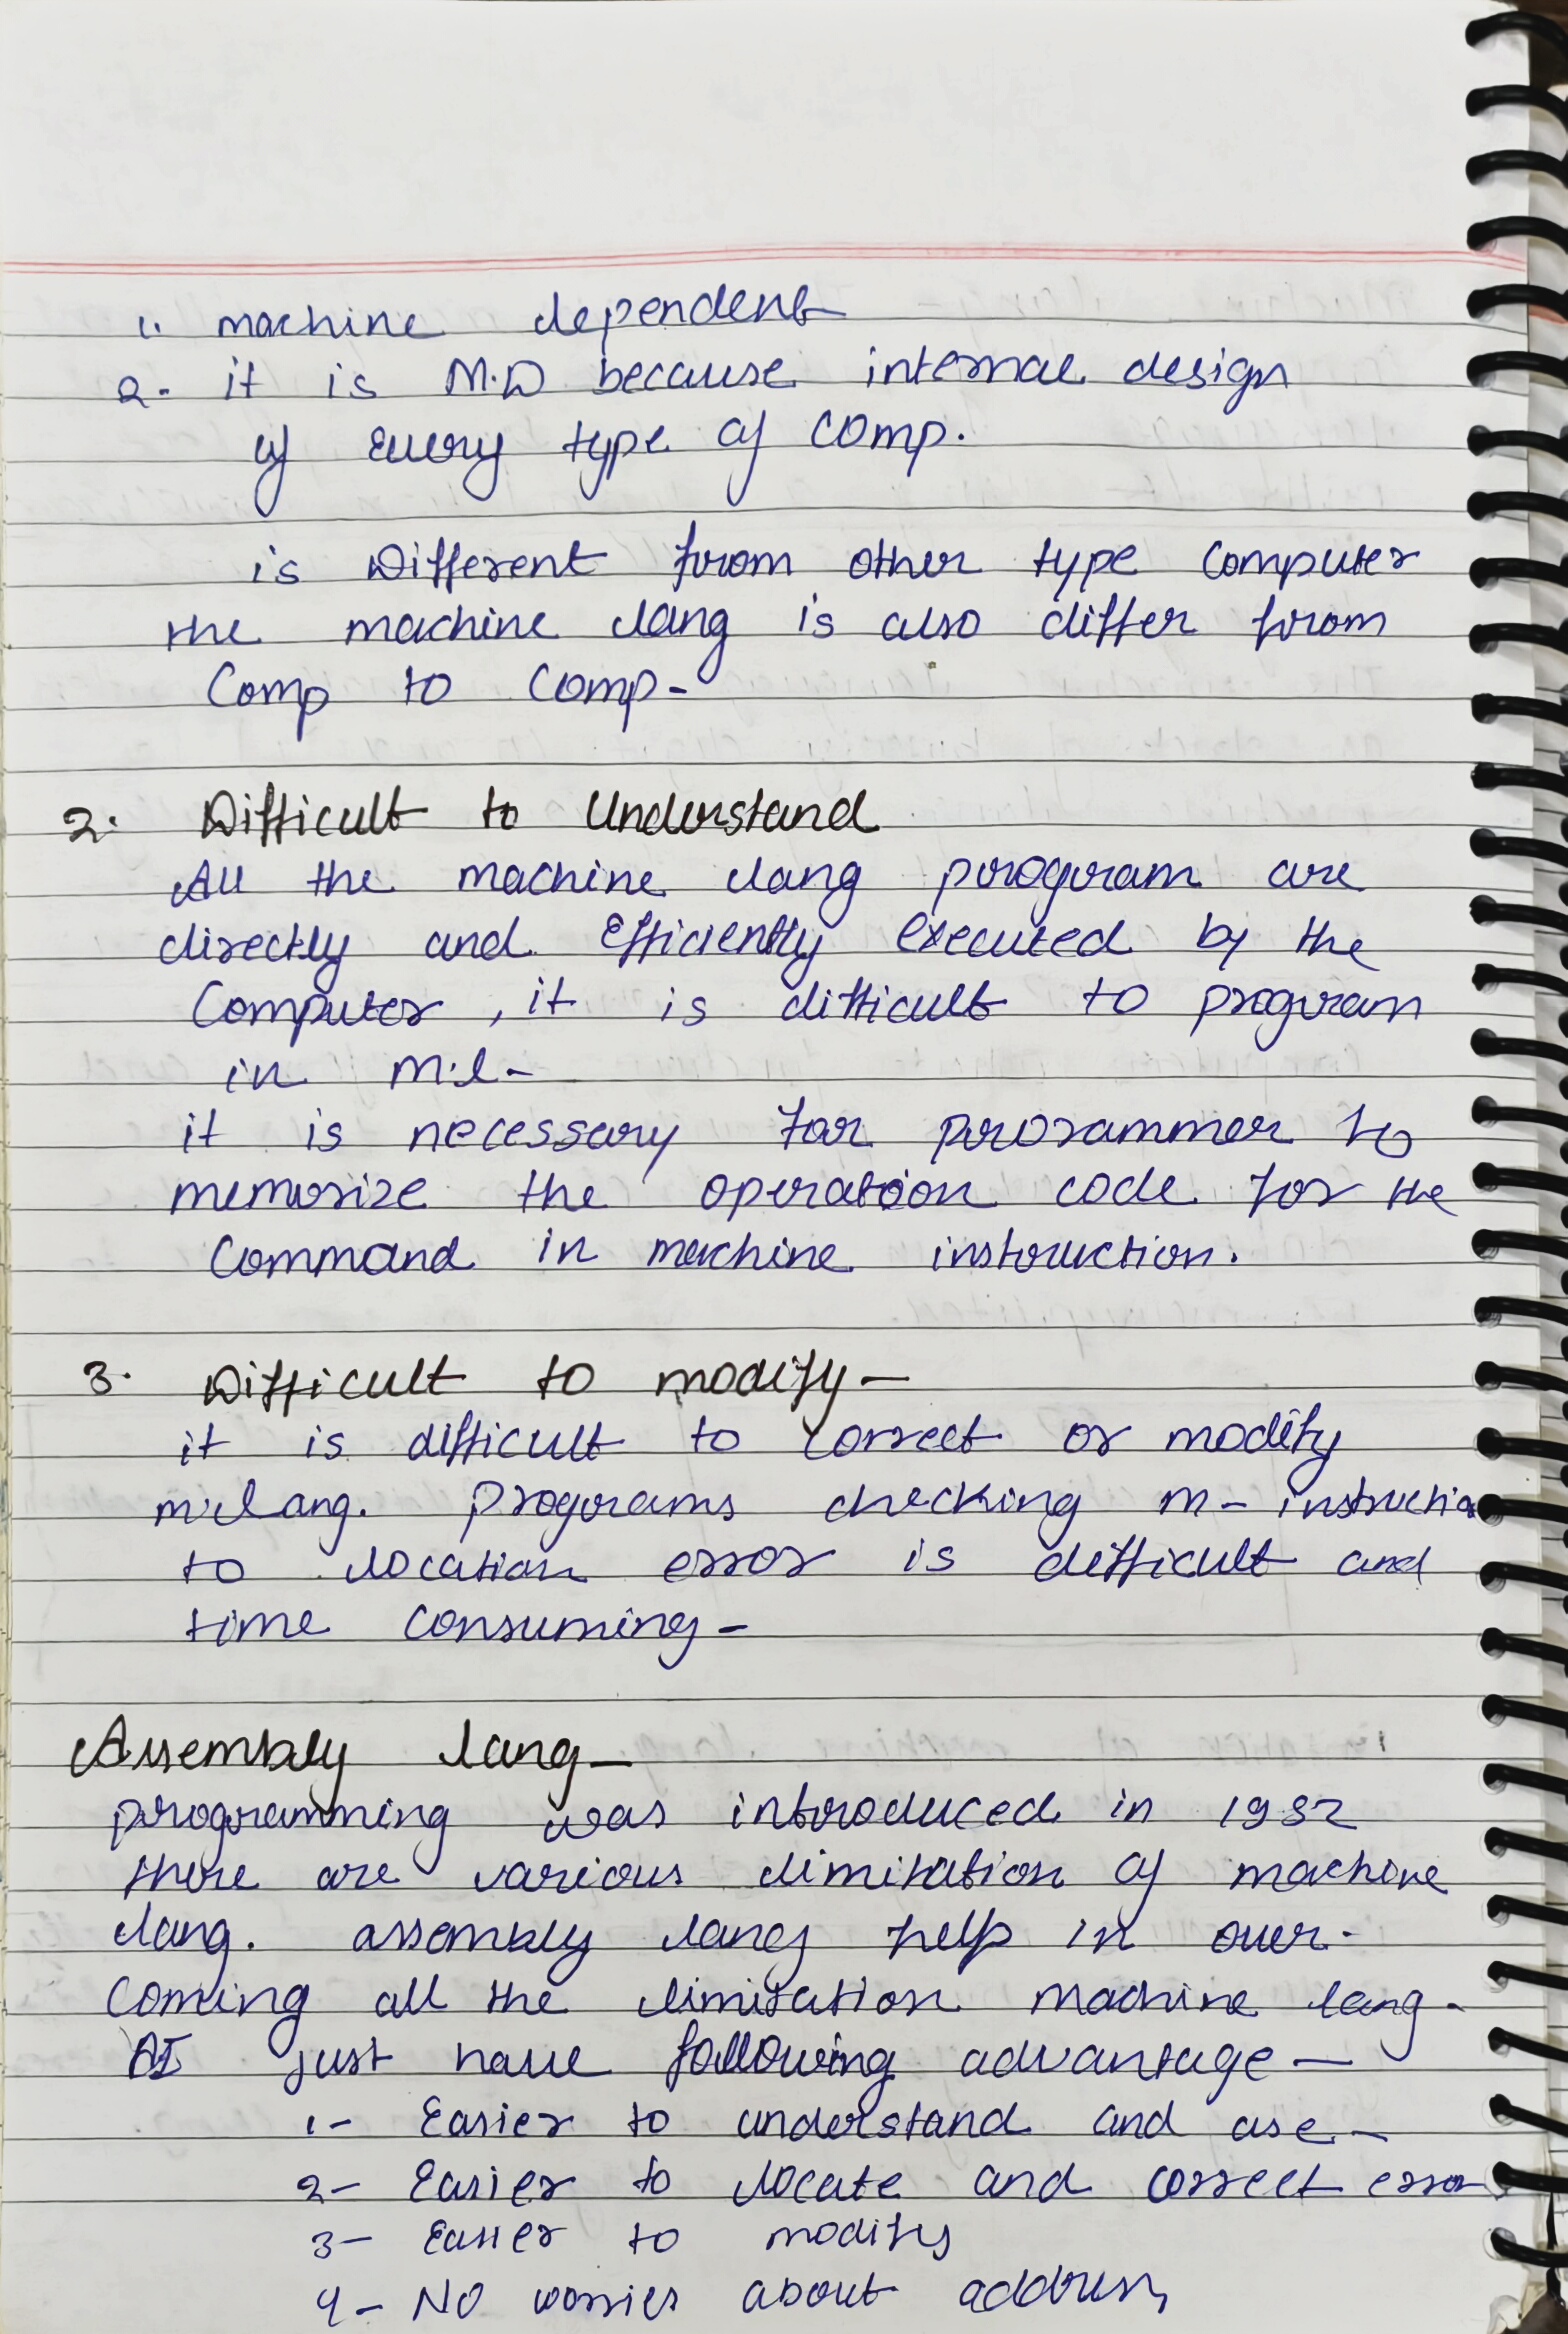 1. machine dependent
2. it is M.D because internal design
of every type of comp.
is Different from other type Computer
the machine lang is also differ from
Comp to Comp-
2. Difficult to Understand
All the machine lang program are
directly and Efficiently executed by the
Computer, it is difficult to program
in m.l-
it is necessary for prorammer to
memorize the operation code for the
Command in machine instruction.
3. Difficult to modify-
it is difficult to correct or modify
m.lang. programs checking m- instructio
to location error is difficult and
time consuming-
Assembly lang-
programming was introduced in 1952
there are various limitation of machine
lang. assembly lang help in over-
coming all the limitation machine lang-
just have following advantage-
1- Easier to understand and use-
2- Easier to locate and correct error
3- Easier to modify
4- No worries about address